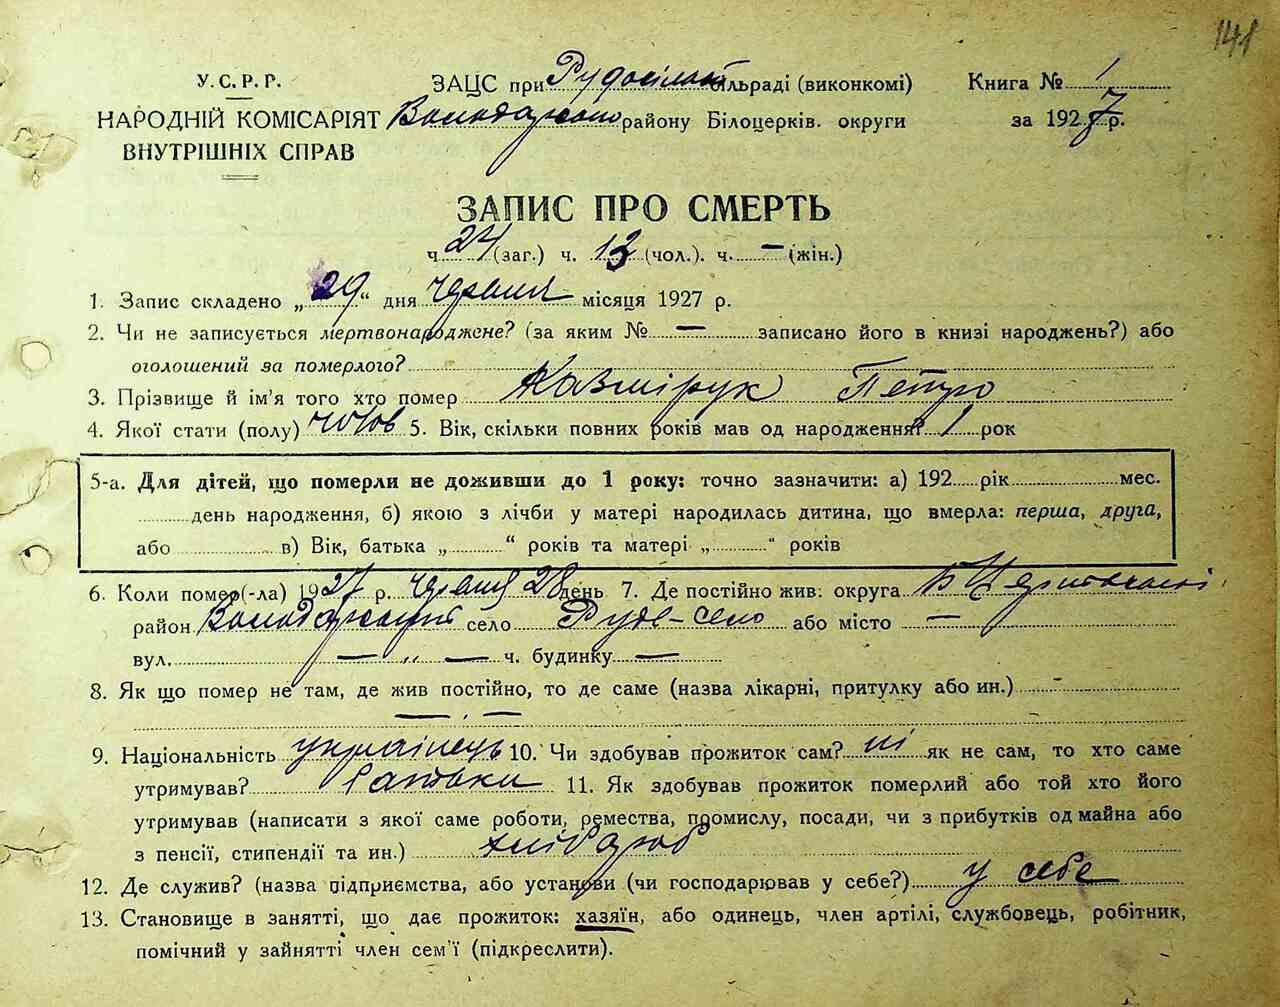 141
У.С.Р.Р.
НАРОДНІЙ КОМІСАРІЯТ
ВНУТРІШНІХ СПРАВ
ЗАЦС при Рудосільській сільраді (виконкомі)
Володарського району Білоцерків. округи
Книга № 1
за 1927 р.
ЗАПИС ПРО СМЕРТЬ
ч. 24 (заг.) ч. 13 (чол.). ч. — (жін.)
1. Запис складено „29“ дня червня місяця 1927 р.
2. Чи не записується мертвонароджене? (за яким № — записано його в книзі народжень?) або
оголошений за померлого?
3. Прізвище й ім'я того хто помер Казмірук Петро
4. Якої стати (полу) чолов 5. Вік, скільки повних років мав од народження? 1 рок
5-а. Для дітей, що померли не доживши до 1 року: точно зазначити: а) 192 рік мес.
день народження, б) якою з лічби у матері народилась дитина, що вмерла: перша, друга,
або в) Вік, батька „ “ років та матері „ “ років
6. Коли помер(-ла) 1927 р. червня 28 день 7. Де постійно жив: округа Б Церківській
район Володарський село Руде-село або місто —
вул. — „ — ч. будинку —
8. Як що помер не там, де жив постійно, то де саме (назва лікарні, притулку або ин.)
— . —
9. Національність українець 10. Чи здобував прожиток сам? ні як не сам, то хто саме
утримував? Батьки 11. Як здобував прожиток померлий або той хто його
утримував (написати з якої саме роботи, ремества, промислу, посади, чи з прибутків од майна або
з пенсії, стипендії та ин.) хлібороб
12. Де служив? (назва підприємства, або установи (чи господарював у себе?) у себе
13. Становище в занятті, що дає прожиток: хазяїн, або одинець, член артілі, службовець, робітник,
помічний у зайнятті член сем'ї (підкреслити).